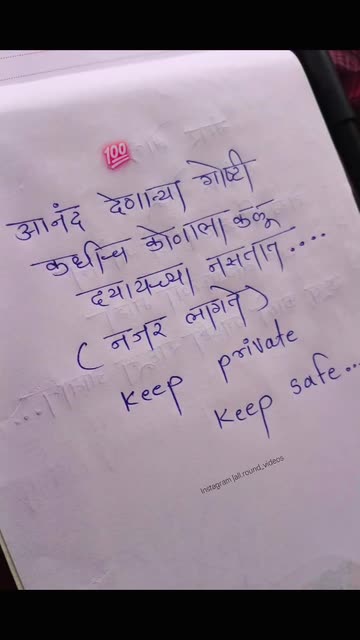 💯
आनंद देणाऱ्या गोष्टी
कधीच कोणाला कळू
द्यायच्या नसतात....
( नजर लागते )
keep private
keep safe...
Instagram |all.round_videos